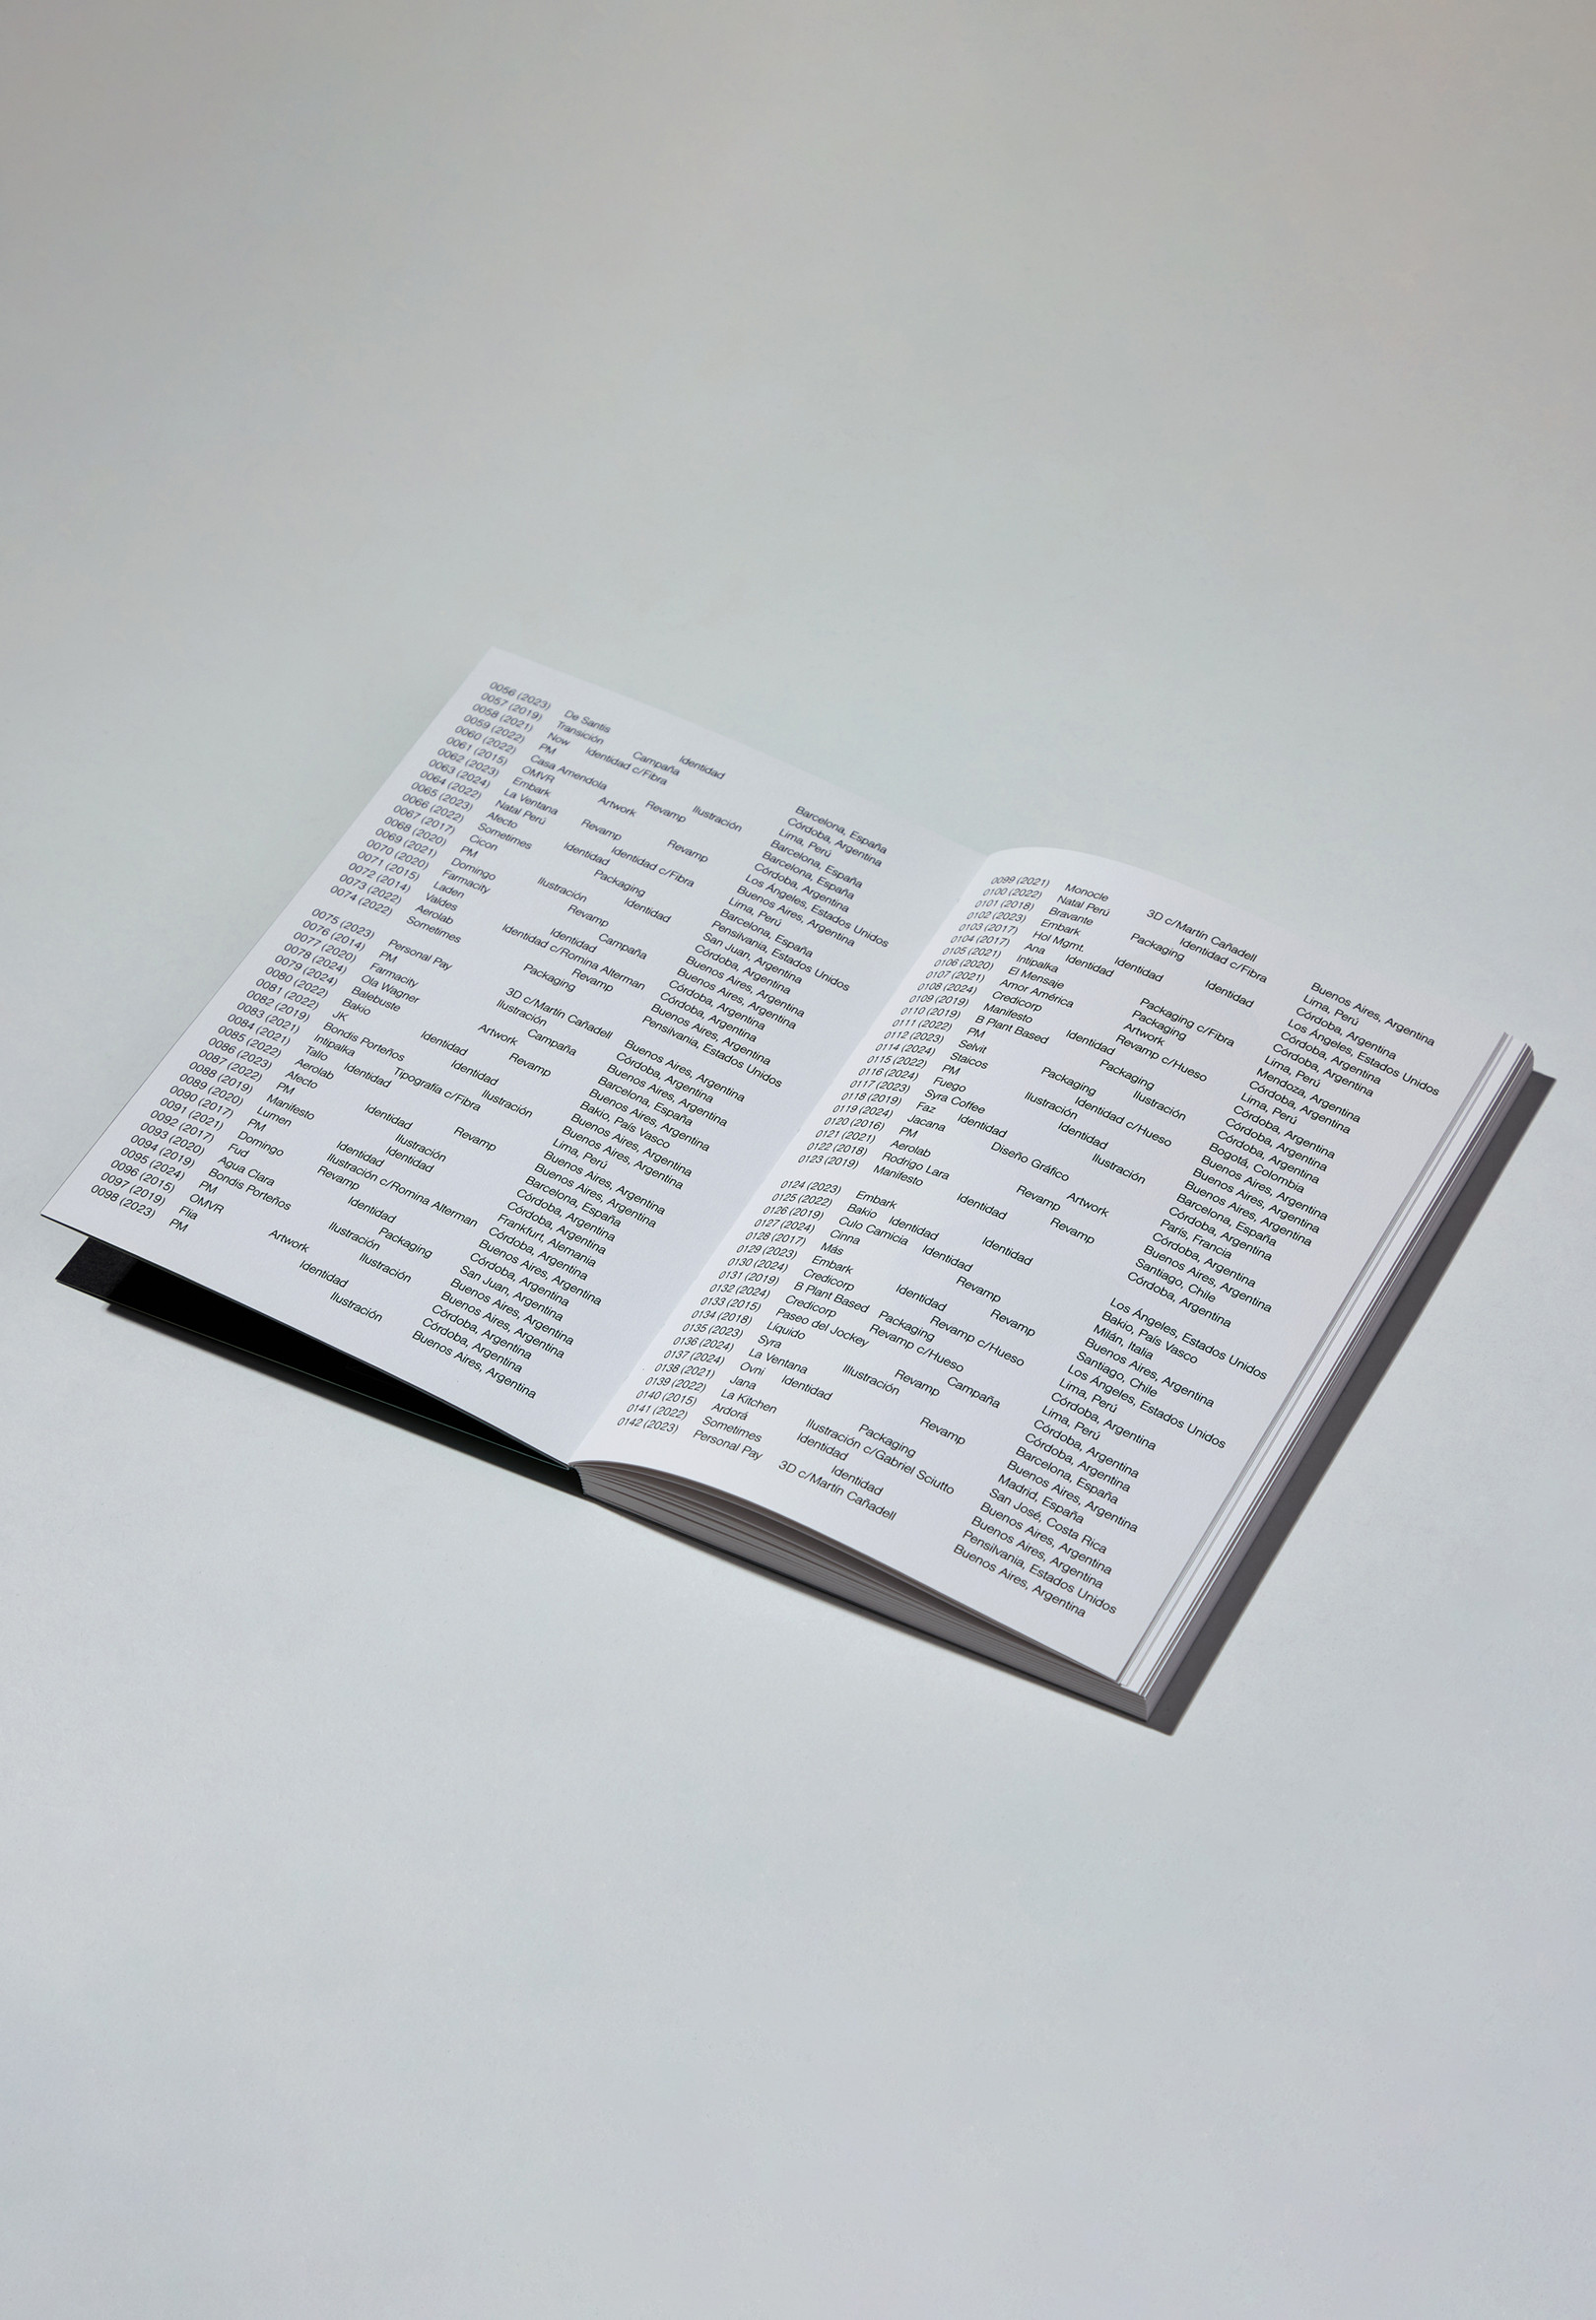 0056 (2023) De Santis Identidad Barcelona, España
0057 (2019) Transición Campaña Córdoba, Argentina
0058 (2021) Now Identidad c/Fibra Lima, Perú
0059 (2022) PM Ilustración Barcelona, España
0060 (2022) Casa Amendola Revamp Barcelona, España
0061 (2015) OMVR Artwork Córdoba, Argentina
0062 (2023) Embark Revamp Los Ángeles, Estados Unidos
0063 (2024) La Ventana Revamp Buenos Aires, Argentina
0064 (2022) Natal Perú Identidad c/Fibra Lima, Perú
0065 (2023) Afecto Identidad Barcelona, España
0066 (2022) Sometimes Packaging Pensilvania, Estados Unidos
0067 (2017) Cicon Identidad San Juan, Argentina
0068 (2020) PM Ilustración Córdoba, Argentina
0069 (2021) Domingo Revamp Buenos Aires, Argentina
0070 (2020) Farmacity Campaña Buenos Aires, Argentina
0071 (2015) Laden Identidad Córdoba, Argentina
0072 (2014) Valdes Identidad c/Romina Alterman Córdoba, Argentina
0073 (2022) Aerolab Revamp Buenos Aires, Argentina
0074 (2022) Sometimes Packaging Pensilvania, Estados Unidos
0075 (2023) Personal Pay 3D c/Martín Cañadell Buenos Aires, Argentina
0076 (2014) PM Ilustración Córdoba, Argentina
0077 (2020) Farmacity Campaña Buenos Aires, Argentina
0078 (2024) Ola Wagner Artwork Barcelona, España
0079 (2024) Balebuste Revamp Buenos Aires, Argentina
0080 (2022) Bakio Identidad Bakio, País Vasco
0081 (2022) JK Identidad Buenos Aires, Argentina
0082 (2019) Bondis Porteños Ilustración Buenos Aires, Argentina
0083 (2021) Intipalka Tipografía c/Fibra Lima, Perú
0084 (2021) Tallo Identidad Buenos Aires, Argentina
0085 (2022) Aerolab Revamp Buenos Aires, Argentina
0086 (2023) Afecto Identidad Barcelona, España
0087 (2022) PM Ilustración Córdoba, Argentina
0088 (2019) Manifesto Identidad Córdoba, Argentina
0089 (2020) Lumen Identidad Frankfurt, Alemania
0090 (2017) PM Ilustración c/Romina Alterman Córdoba, Argentina
0091 (2021) Domingo Revamp Buenos Aires, Argentina
0092 (2017) Fud Identidad Córdoba, Argentina
0093 (2020) Agua Clara Packaging San Juan, Argentina
0094 (2019) Bondis Porteños Ilustración Buenos Aires, Argentina
0095 (2024) PM Ilustración Buenos Aires, Argentina
0096 (2015) OMVR Artwork Córdoba, Argentina
0097 (2019) Flia Identidad Córdoba, Argentina
0098 (2023) PM Ilustración Buenos Aires, Argentina
0099 (2021) Monocle 3D c/Martín Cañadell Buenos Aires, Argentina
0100 (2022) Natal Perú Identidad c/Fibra Lima, Perú
0101 (2018) Bravante Packaging Córdoba, Argentina
0102 (2023) Embark Identidad Los Ángeles, Estados Unidos
0103 (2017) Hol Mgmt. Identidad Córdoba, Argentina
0104 (2017) Ana Identidad Córdoba, Argentina
0105 (2021) Intipalka Packaging c/Fibra Lima, Perú
0106 (2020) El Mensaje Packaging Mendoza, Argentina
0107 (2021) Amor América Artwork Córdoba, Argentina
0108 (2024) Credicorp Revamp c/Hueso Lima, Perú
0109 (2019) Manifesto Identidad Córdoba, Argentina
0110 (2019) B Plant Based Packaging Córdoba, Argentina
0111 (2022) PM Ilustración Córdoba, Argentina
0112 (2023) Selvit Packaging Bogotá, Colombia
0114 (2024) Staicos Identidad c/Hueso Buenos Aires, Argentina
0115 (2022) PM Ilustración Buenos Aires, Argentina
0116 (2024) Fuego Identidad Buenos Aires, Argentina
0117 (2023) Syra Coffee Ilustración Barcelona, España
0118 (2019) Faz Identidad Córdoba, Argentina
0119 (2024) Jacana Diseño Gráfico París, Francia
0120 (2016) PM Artwork Córdoba, Argentina
0121 (2021) Aerolab Revamp Buenos Aires, Argentina
0122 (2018) Rodrigo Lara Revamp Santiago, Chile
0123 (2019) Manifesto Identidad Córdoba, Argentina
0124 (2023) Embark Identidad Los Ángeles, Estados Unidos
0125 (2022) Bakio Identidad Bakio, País Vasco
0126 (2019) Culo Camicia Identidad Milán, Italia
0127 (2024) Cinna Revamp Buenos Aires, Argentina
0128 (2017) Más Revamp Santiago, Chile
0129 (2023) Embark Identidad Los Ángeles, Estados Unidos
0130 (2024) Credicorp Revamp c/Hueso Lima, Perú
0131 (2019) B Plant Based Packaging Córdoba, Argentina
0132 (2024) Credicorp Revamp c/Hueso Lima, Perú
0133 (2015) Paseo del Jockey Campaña Córdoba, Argentina
0134 (2018) Líquido Revamp Córdoba, Argentina
0135 (2023) Syra Ilustración Barcelona, España
0136 (2024) La Ventana Revamp Buenos Aires, Argentina
0137 (2024) Ovni Identidad Madrid, España
0138 (2021) Jana Packaging San José, Costa Rica
0139 (2022) La Kitchen Ilustración c/Gabriel Sciutto Buenos Aires, Argentina
0140 (2015) Ardorá Identidad Buenos Aires, Argentina
0141 (2022) Sometimes Identidad Pensilvania, Estados Unidos
0142 (2023) Personal Pay 3D c/Martín Cañadell Buenos Aires, Argentina